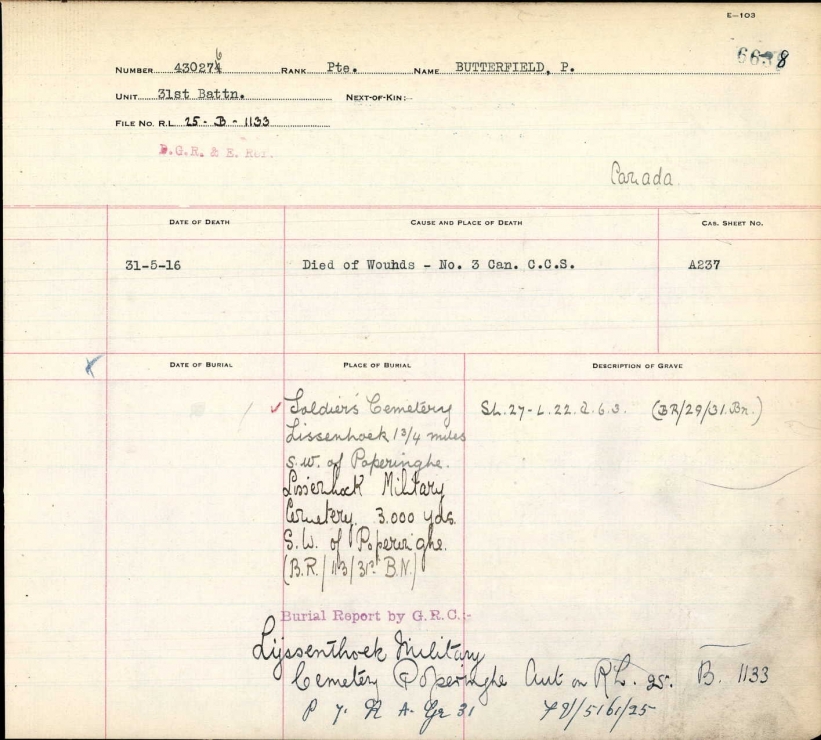 E-103
6638
NUMBER 430276 RANK Pte. NAME BUTTERFIELD, P.
UNIT 31st Battn. NEXT-OF-KIN:-
FILE NO. R.L. 25 - B - 1133
D.G.R. & E. Ref.
Canada.
DATE OF DEATH CAUSE AND PLACE OF DEATH CAS. SHEET NO.
31-5-16 Died of Wounds - No. 3 Can. C.C.S. A237
DATE OF BURIAL PLACE OF BURIAL DESCRIPTION OF GRAVE
Soldier's Cemetery Sh.27-L.22.a.6.3. (BR/29/31.Bn.)
Lissenhoek 1 3/4 miles
S.W. of Poperinghe.
Lissenhock Military
Cemetery. 3.000 yds.
S.W. of Poperinghe.
(B.R./113/31st B.N.)
Burial Report by G.R.C.:-
Lijssenthoek Military
Cemetery Poperinghe Aut on RL. 25. B. 1133
P 7. R A. Gr 31